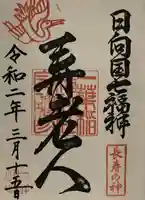 日向国七福神
寿老人
長寿の神
令和二年三月十五日